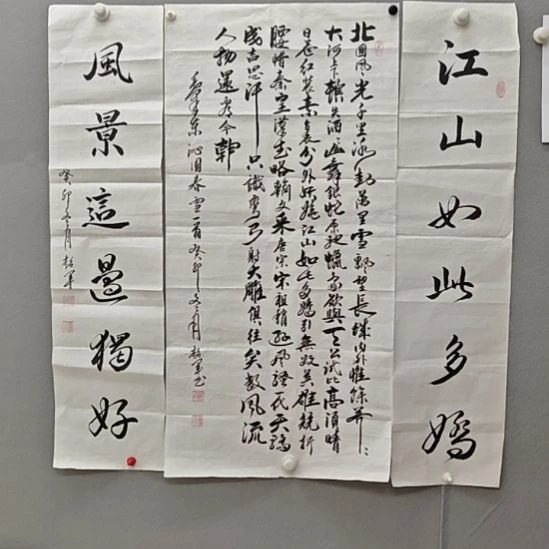 江山如此多嬌
北國風光千里冰封萬里雪飄望長城內外惟餘莽〻
大河上下頓失滔滔山舞銀蛇原馳蠟象欲與天公試比高須晴
日看紅裝素裹分外妖嬈江山如此多嬌引無數英雄競折
腰惜秦皇漢武略輸文采唐宗宋祖稍遜風騷一代天驕
成吉思汗只識彎弓射大雕俱往矣數風流
人物還看今朝
毛澤東沁園春雪一首癸卯冬月
風景這邊獨好
癸卯冬月